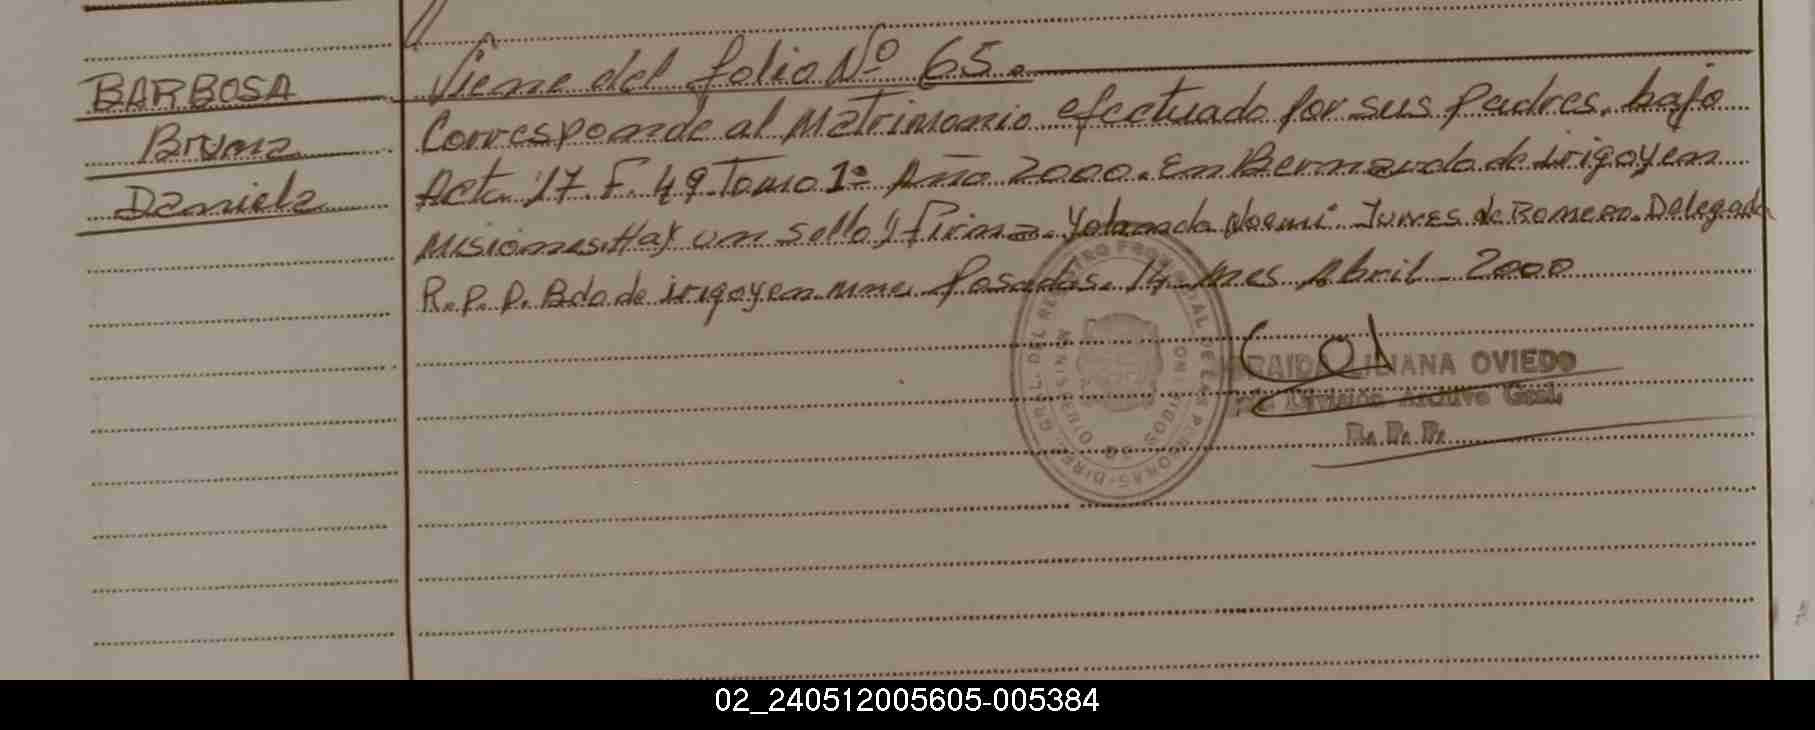 BARBOSA
Bruna
Daniela
Viene del folio Nº 65.
Corresponde al Matrimonio efectuado por sus Padres, bajo
Acta 17. F. 49. Tomo 1º Año 2000. En Bernardo de irigoyen
Misiones. Hay un sello y Firma. Yolanda Noemi Junes de Romero. Delegada
R.P.P. Bdo de irigoyen mnes Posadas. 14 mes Abril - 2000
DIRE. GRAL. DEL REGISTRO PROVINCIAL DE LAS PERSONAS
MINISTERIO DE GOBIERNO
LILIANA OVIEDO
División Archivo Gral.
R. P. P.
02_240512005605-005384